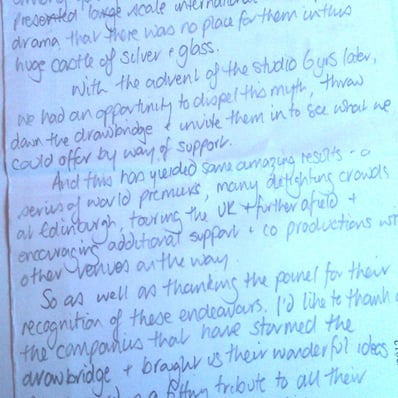 presented large scale international
drama that there was no place for them in this
huge castle of silver + glass.
With the advent of the studio 6 yrs later,
we had an opportunity to dispel this myth, throw
down the drawbridge + invite them in to see what we
could offer by way of support.
And this has yielded some amazing results - a
series of world premiers, many delighting crowds
at Edinburgh, touring the UK + further afield +
encouraging additional support + co productions
other venues on the way.
So as well as thanking the panel for their
recognition of these endeavours. I'd like to thank
the companies that have stormed the
drawbridge + brought us their wonderful ideas
a fitting tribute to all their